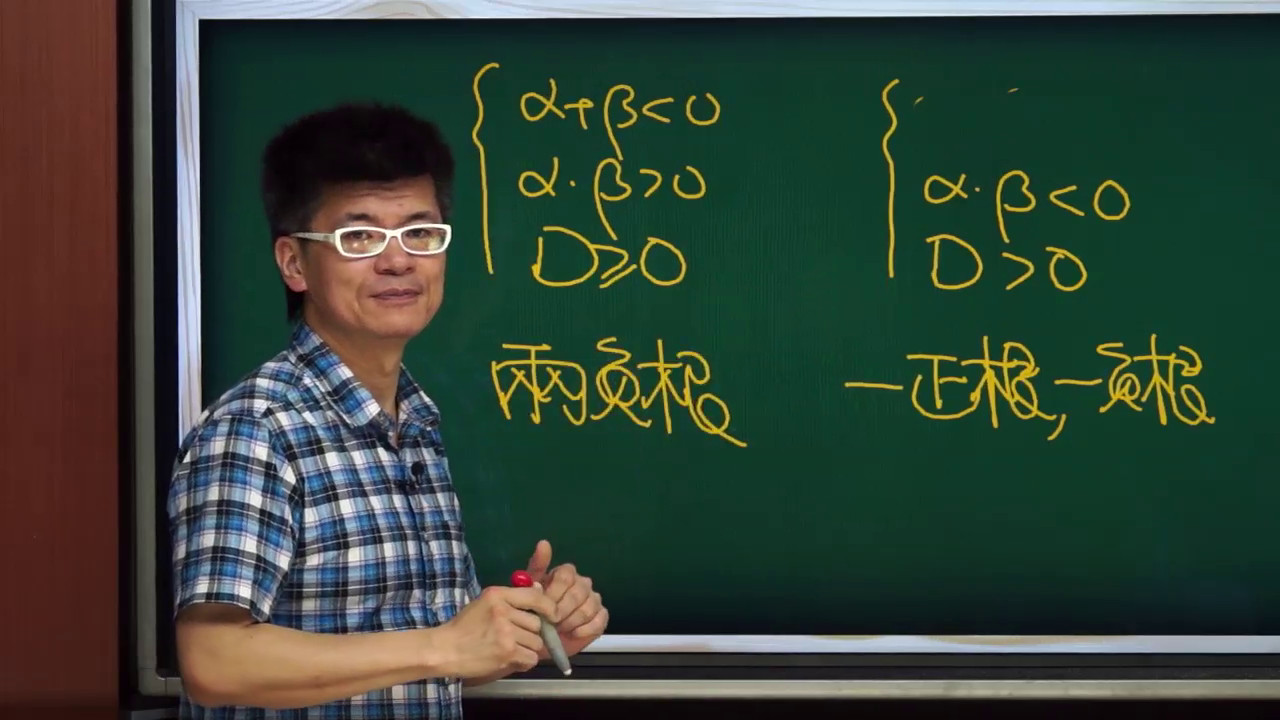 α+β<0
α·β>0
D≥0
兩负根
α·β<0
D>0
一正根,一负根